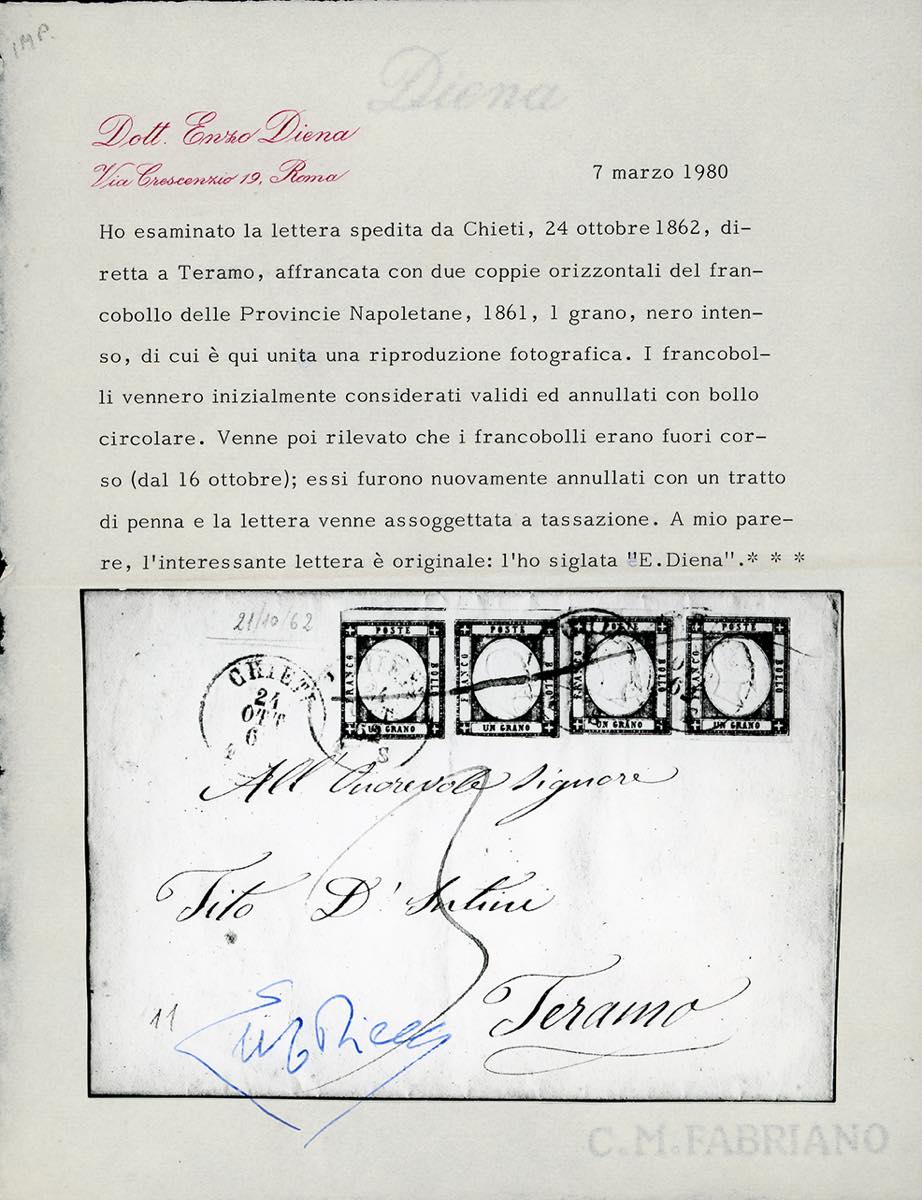 IMP.
Diena
Dott. Enzo Diena
Via Crescenzio 19, Roma
7 marzo 1980
Ho esaminato la lettera spedita da Chieti, 24 ottobre 1862, di-
retta a Teramo, affrancata con due coppie orizzontali del fran-
cobollo delle Provincie Napoletane, 1861, 1 grano, nero inten-
so, di cui è qui unita una riproduzione fotografica. I francobol-
li vennero inizialmente considerati validi ed annullati con bollo
circolare. Venne poi rilevato che i francobolli erano fuori cor-
so (dal 16 ottobre); essi furono nuovamente annullati con un tratto
di penna e la lettera venne assoggettata a tassazione. A mio pare-
re, l'interessante lettera è originale: l'ho siglata "E.Diena".* * *
21/10/62
POSTE POSTE POSTE POSTE
FRANCO BOLLO FRANCO BOLLO FRANCO BOLLO FRANCO BOLLO
UN GRANO UN GRANO UN GRANO UN GRANO
CHIETI
24
OTT
6
All' Onorevole Signore
Tito D'
Teramo
11
C.M.FABRIANO